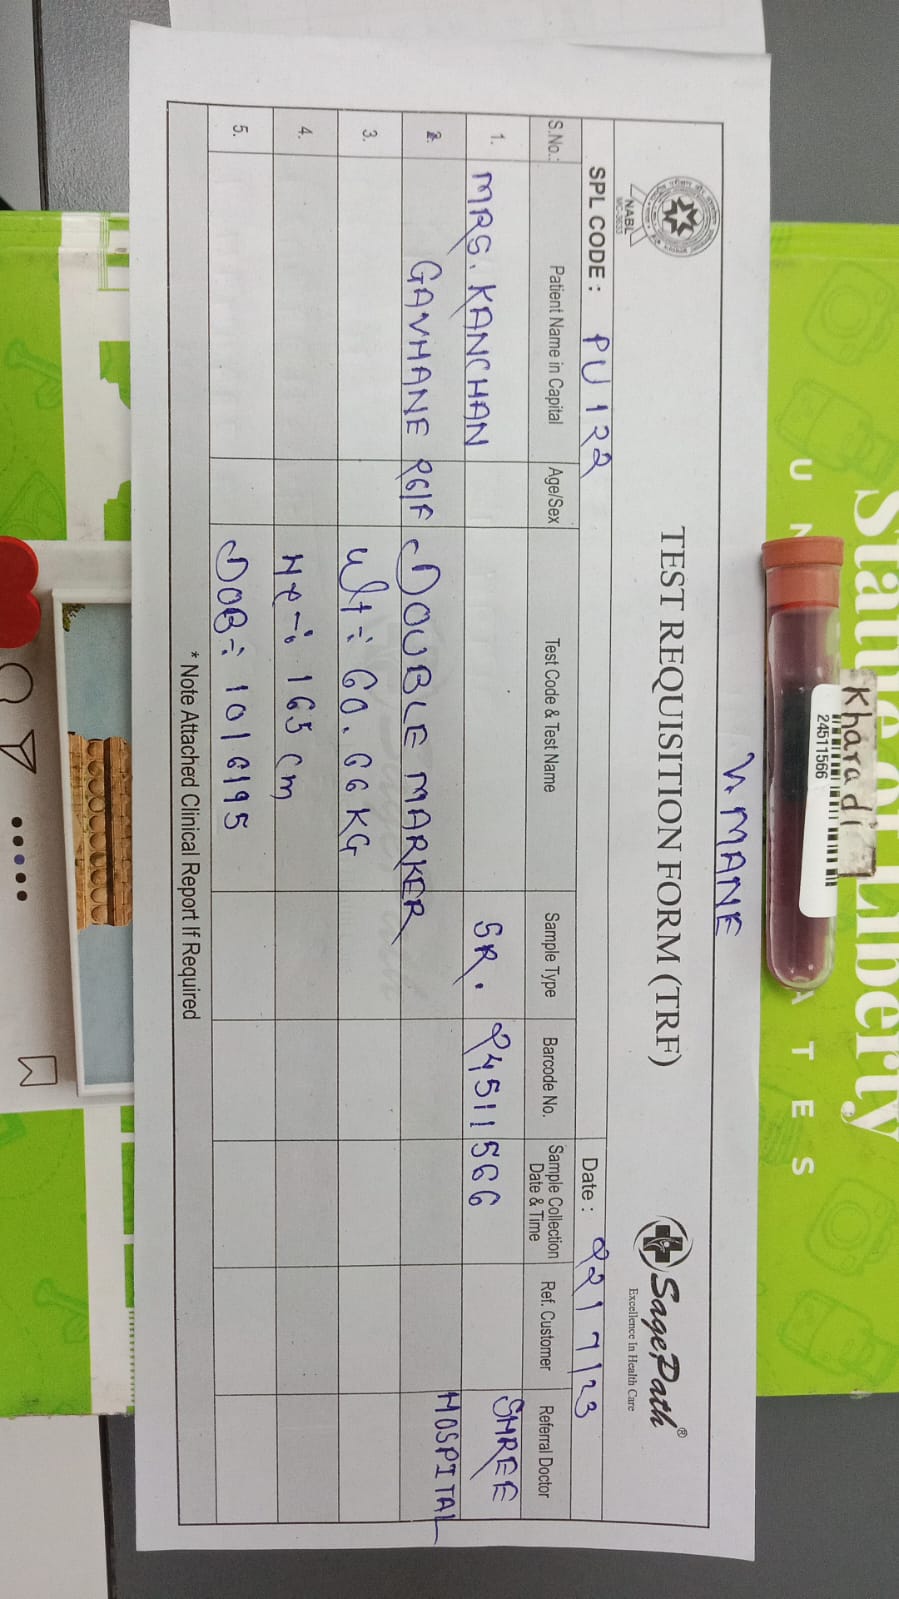 Statue of Liberty
V. MANE
Kharadi
24511566
TEST REQUISITION FORM (TRF)
SagePath®
Excellence In Health Care
NABL
SPL CODE : PU 122
Date : 22/7/23
S.No.: Patient Name in Capital Age/Sex Test Code & Test Name Sample Type Barcode No. Sample Collection Date & Time Ref. Customer Referral Doctor
1. MRS. KANCHAN SR. 24511566 SHREE
2. GAVHANE 26/F DOUBLE MARKER HOSPITAL
3. Wt- 60.66 KG
4. Ht- 165 cm
5. DOB- 10/6/95
* Note Attached Clinical Report If Required